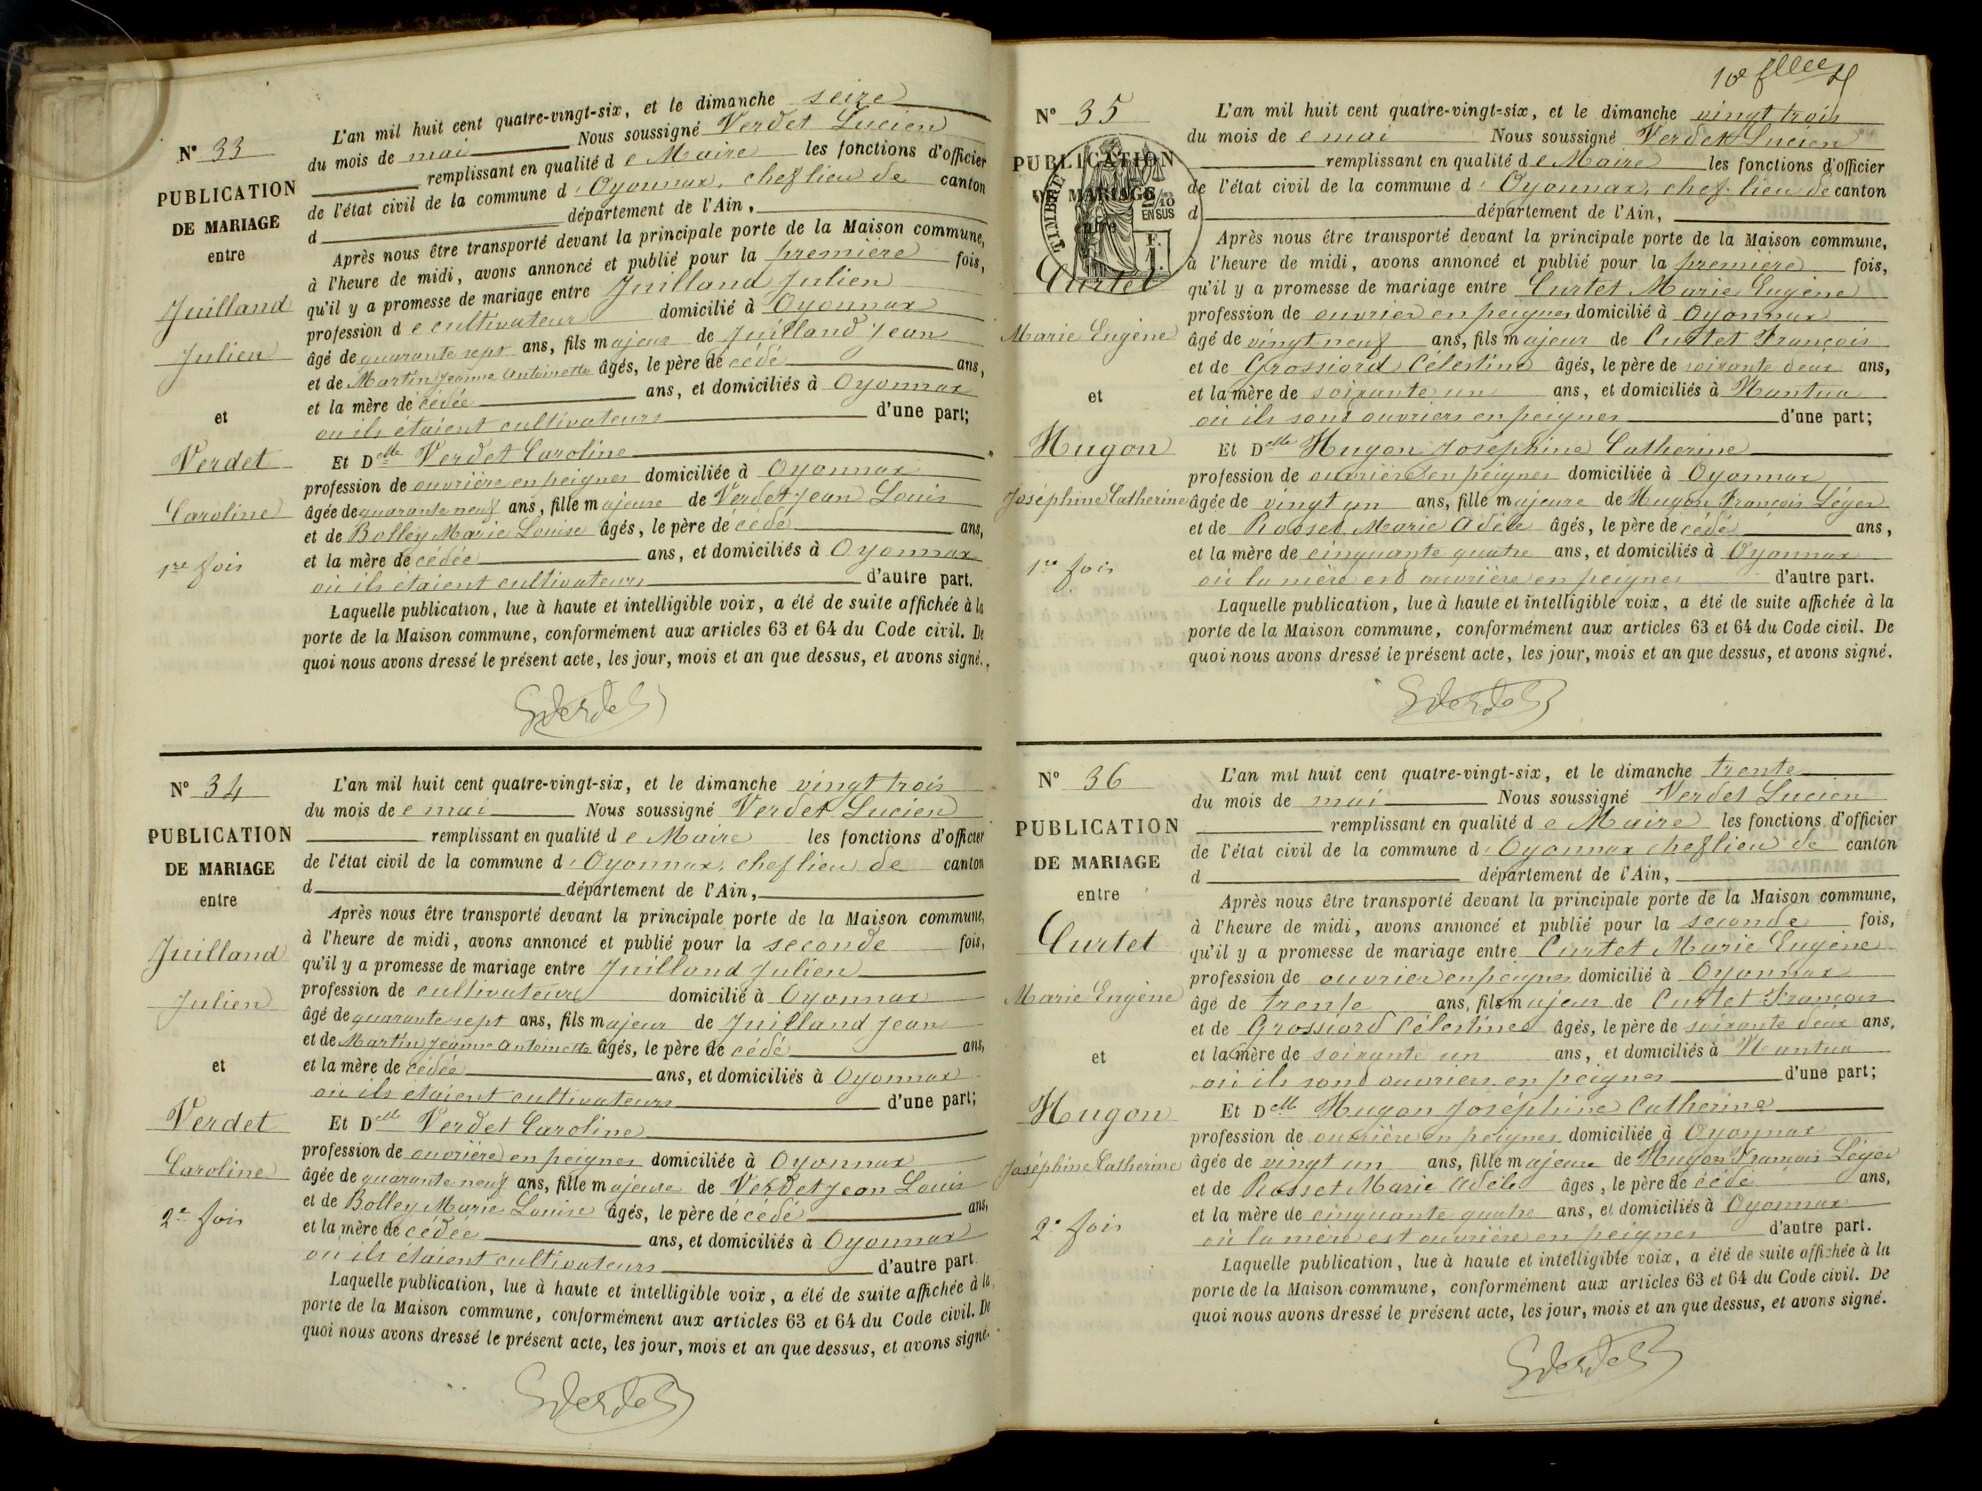 N° 33
PUBLICATION
DE MARIAGE
entre
Juilland
Julien
et
Verdet
Caroline
1re fois
L'an mil huit cent quatre-vingt-six, et le dimanche seize
du mois de mai Nous soussigné Verdet Lucien
remplissant en qualité d e Maire les fonctions d'officier
de l'état civil de la commune d'Oyonnax, chef lieu de canton
d département de l'Ain,
Après nous être transporté devant la principale porte de la Maison commune,
à l'heure de midi, avons annoncé et publié pour la première fois,
qu'il y a promesse de mariage entre Juilland Julien
profession d e cultivateur domicilié à Oyonnax
âgé de quarante sept ans, fils majeur de Juilland Jean
et de Martin Jeanne Antoinette âgés, le père de cédé ans,
et la mère de cédée ans, et domiciliés à Oyonnax
où ils étaient cultivateurs d'une part;
Et Delle Verdet Caroline
profession de ouvrière en peignes domiciliée à Oyonnax
âgée de quarante neuf ans, fille majeure de Verdet Jean Louis
et de Bolley Marie Louise âgés, le père de cédé ans,
et la mère de cédée ans, et domiciliés à Oyonnax
où ils étaient cultivateurs d'autre part.
Laquelle publication, lue à haute et intelligible voix, a été de suite affichée à la
porte de la Maison commune, conformément aux articles 63 et 64 du Code civil. De
quoi nous avons dressé le présent acte, les jour, mois et an que dessus, et avons signé.
LVerdet
N° 34
PUBLICATION
DE MARIAGE
entre
Juilland
Julien
et
Verdet
Caroline
2e fois
L'an mil huit cent quatre-vingt-six, et le dimanche vingt trois
du mois de e mai Nous soussigné Verdet Lucien
remplissant en qualité d e Maire les fonctions d'officier
de l'état civil de la commune d'Oyonnax, chef lieu de canton
d département de l'Ain,
Après nous être transporté devant la principale porte de la Maison commune,
à l'heure de midi, avons annoncé et publié pour la seconde fois,
qu'il y a promesse de mariage entre Juilland Julien
profession de cultivateur domicilié à Oyonnax
âgé de quarante sept ans, fils majeur de Juilland Jean
et de Martin Jeanne Antoinette âgés, le père de cédé ans,
et la mère de cédée ans, et domiciliés à Oyonnax
où ils étaient cultivateurs d'une part;
Et Delle Verdet Caroline
profession de ouvrière en peignes domiciliée à Oyonnax
âgée de quarante neuf ans, fille majeure de Verdet Jean Louis
et de Bolley Marie Louise âgés, le père de cédé ans,
et la mère de cédée ans, et domiciliés à Oyonnax
où ils étaient cultivateurs d'autre part.
Laquelle publication, lue à haute et intelligible voix, a été de suite affichée à la
porte de la Maison commune, conformément aux articles 63 et 64 du Code civil. De
quoi nous avons dressé le présent acte, les jour, mois et an que dessus, et avons signé.
LVerdet
10e
N° 35
PUBLICATION
DE MARIAGE
entre
TIMBRE
2/10
EN SUS
Curtet
Marie Eugène
et
Hugon
Joséphine Catherine
1re fois
L'an mil huit cent quatre-vingt-six, et le dimanche vingt trois
du mois de e mai Nous soussigné Verdet Lucien
remplissant en qualité d e Maire les fonctions d'officier
de l'état civil de la commune d'Oyonnax, chef-lieu de canton
d département de l'Ain,
Après nous être transporté devant la principale porte de la Maison commune,
à l'heure de midi, avons annoncé et publié pour la première fois,
qu'il y a promesse de mariage entre Curtet Marie Eugène
profession de ouvrier en peignes domicilié à Oyonnax
âgé de vingt neuf ans, fils majeur de Curtet François
et de Grossiord Célestine âgés, le père de soixante deux ans,
et la mère de soixante un ans, et domiciliés à Nantua
où ils sont ouvriers en peignes d'une part;
Et Delle Hugon Joséphine Catherine
profession de ouvrière en peignes domiciliée à Oyonnax
âgée de vingt un ans, fille majeure de Hugon François Léger
et de Rosset Marie Adèle âgés, le père de cédé ans,
et la mère de cinquante quatre ans, et domiciliés à Oyonnax
où la mère est ouvrière en peignes d'autre part.
Laquelle publication, lue à haute et intelligible voix, a été de suite affichée à la
porte de la Maison commune, conformément aux articles 63 et 64 du Code civil. De
quoi nous avons dressé le présent acte, les jour, mois et an que dessus, et avons signé.
LVerdet
N° 36
PUBLICATION
DE MARIAGE
entre
Curtet
Marie Eugène
et
Hugon
Joséphine Catherine
2e fois
L'an mil huit cent quatre-vingt-six, et le dimanche trente
du mois de mai Nous soussigné Verdet Lucien
remplissant en qualité d e Maire les fonctions d'officier
de l'état civil de la commune d'Oyonnax chef lieu de canton
d département de l'Ain,
Après nous être transporté devant la principale porte de la Maison commune,
à l'heure de midi, avons annoncé et publié pour la seconde fois,
qu'il y a promesse de mariage entre Curtet Marie Eugène
profession de ouvrier en peignes domicilié à Oyonnax
âgé de trente ans, fils majeur de Curtet François
et de Grossiord Célestine âgés, le père de soixante deux ans,
et la mère de soixante un ans, et domiciliés à Nantua
où ils sont ouvriers en peignes d'une part;
Et Delle Hugon Joséphine Catherine
profession de ouvrière en peignes domiciliée à Oyonnax
âgée de vingt un ans, fille majeure de Hugon François Léger
et de Rosset Marie Adèle âgés, le père de cédé ans,
et la mère de cinquante quatre ans, et domiciliés à Oyonnax
où la mère est ouvrière en peignes d'autre part.
Laquelle publication, lue à haute et intelligible voix, a été de suite affichée à la
porte de la Maison commune, conformément aux articles 63 et 64 du Code civil. De
quoi nous avons dressé le présent acte, les jour, mois et an que dessus, et avons signé.
LVerdet